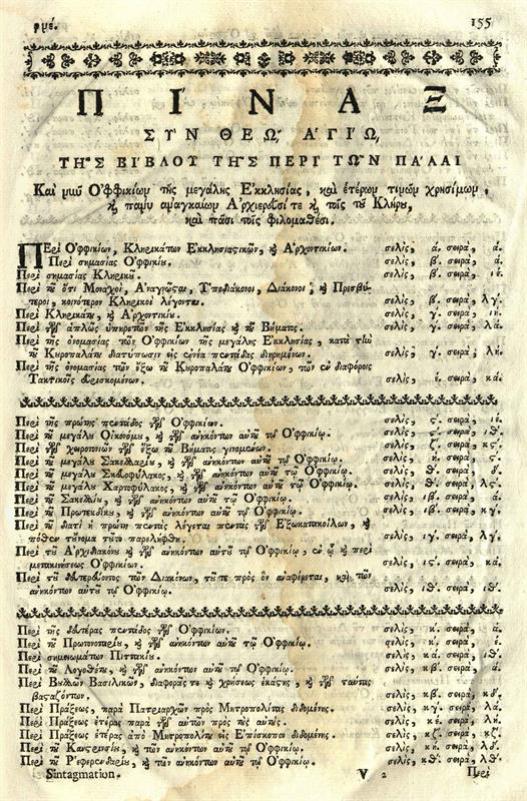 ρμέ. 155
ΠΙΝΑΞ
ΣΥΝ ΘΕΩ͂ ἉΓΙΩ,
ΤΗ͂Σ ΒΙΒΛΟΥ ΤΗ͂Σ ΠΕΡΙ ΤΩ͂Ν ΠΑΛΑΙ
Καὶ νιῦ Ὀφφικίων τῆς μεγάλης Ἐκκλησίας, καὶ ἑτέρων τινῶν χρησίμων,
ϗ πάνυ ἀναγκαίων Ἀρχιερεῦσί τε ϗ τοῖς τῦ Κλήρυ,
καὶ πᾶσι τοῖς φιλομαθέσι.
ΠΕρὶ Ὀφφικίων, Κληρικάτων Ἐκκλησιαστικῶν, ϗ Ἀρχοντικίων. σελίς, ά. σειρὰ, ά.
Περὶ σημασίας Ὀφφικίυ. σελίς, β. σειρὰ, ά.
Περὶ σημασίας Κληρικῦ. σελίς, β. σειρὰ, ιέ.
Περὶ τῦ ὅτι Μοναχοὶ, Ἀναγνῶσται, Ὑποδιάκονοι, Διάκονοι, ϗ Πρεσβύ-
τεροι, κοινότερον Κληρικοὶ λέγονται. σελίς, β. σειρὰ, λγ.
Περὶ Κληρικάτυ, ϗ Ἀρχοντικίυ. σελίς, γ. σειρὰ, ιη.
Περὶ τῶν ἁπλῶς ὑπηρετῶν τῆς Ἐκκλησίας ϗ τῦ Βήματος. σελίς, γ. σειρὰ, λα.
Περὶ τῆς ὀνομασίας τῶν Ὀφφικίων τῆς μεγάλης Ἐκκλησίας, κατὰ τὴν
τῦ Κυροπαλάτυ διατύπωσιν εἰς ἐννέα πεντάδας διῃρημένων. σελίς, γ. σειρὰ, λη.
Περὶ τῆς ὀνομασίας τῶν ἔξω τῦ Κυροπαλάτυ Ὀφφικίων, τῶν ἐν διαφόροις
Τακτικοῖς εὑρισκομένων. σελίς, έ. σειρὰ, κά.
Περὶ τῆς πρώτης πεντάδος τῶν Ὀφφικίων. σελίς, ϛ. σειρὰ, ιέ.
Περὶ τῦ μεγάλυ Οἰκονόμυ, ϗ τῶν ἀνηκόντων αὐτῷ τῷ Ὀφφικίῳ. σελίς, ϛ. σειρὰ, ιθ.
Περὶ τῶν χειροτονιῶν τῶν ἔξω τῦ Βήματος γινομένων. σελίς, ζ. σειρὰ, κϛ.
Περὶ τῦ μεγάλυ Σακελλαρίυ, ϗ τῶν ἀνηκόντων αὐτῷ τῷ Ὀφφικίῳ. σελίς, η. σειρὰ, ϛ.
Περὶ τῦ μεγάλυ Σκευοφύλακος, ϗ τῶν ἀνηκόντων αὐτῷ τῷ Ὀφφικίῳ. σελίς, θ. σειρὰ, δ.
Περὶ τῦ μεγάλυ Χαρτοφύλακος, ϗ τῶν ἀνηκόντων αὐτῷ τῷ Ὀφφικίῳ. σελίς, θ. σειρὰ, λϛ.
Περὶ τῦ Σακελλίυ, ϗ τῶν ἀνηκόντων αὐτῷ τῷ Ὀφφικίῳ. σελίς, ιβ. σειρὰ, ά.
Περὶ τῦ Πρωτεκδίκυ, ϗ τῶν ἀνηκόντων αὐτῷ τῷ Ὀφφικίῳ. σελίς, ιβ. σειρὰ, κβ.
Περὶ τῦ διατί ἡ πρώτη πεντὰς λέγεται πεντὰς τῶν Ἐξωκατακοίλων, ϗ
πόθεν τὔνομα τῦτο παρελήφθη. σελίς, ιγ. σειρὰ, λγ.
Περὶ τῦ Ἀρχιδιακόνυ ϗ τῶν ἀνηκόντων αὐτῦ τῷ Ὀφφικίῳ, ἐν ᾧ ϗ περὶ
μετακινήσεως Ὀφφικίων. σελίς, ιϛ. σειρὰ, κά.
Περὶ τῦ δευτερεύοντος τῶν Διακόνων, τῦτε πρὸς ὃν ἀναφέρεται, καὶ τῶν
ἀνηκόντων αὐτῦ τῷ Ὀφφικίῳ. σελίς, ιθ. σειρὰ, ιθ.
Περὶ τῆς δευτέρας πεντάδος τῶν Ὀφφικίων. σελίς, κ. σειρὰ, ά.
Περὶ τῦ Πρωτονοταρίυ, ϗ τῶν ἀνηκόντων αὐτῦ τῷ Ὀφφικίῳ. σελίς, κ. σειρὰ, έ.
Περὶ σημειωμάτων Πιττακίυ. σελίς, κά. σειρὰ, ιθ.
Περὶ τῦ Λογοθέτυ, ϗ τῶν ἀνηκόντων αὐτῦ τῷ Ὀφφικίῳ. σελίς, κβ. σειρὰ, ά.
Περὶ Βυλλῶν Βασιλικῶν, διαφορᾶς τε ϗ χρήσεως ἑκάστης, ϗ τῶν ταύτας
βασταζόντων. σελίς, κβ. σειρὰ, κδ.
Περὶ Πράξεως, παρὰ Πατριαρχῶν πρὸς Μητροπολίτας διδομένης. σελίς, κγ. σειρὰ, λη.
Περὶ Πράξεως ἑτέρας παρὰ τῶν αὐτῶν πρὸς τὺς αὐτύς. σελίς, κέ. σειρὰ, λη.
Περὶ Πράξεως ἑτέρας ἀπὸ Μητροπολίτυ εἰς Ἐπίσκοπον διδομένης. σελίς, κζ. σειρὰ, κζ.
Περὶ τῦ Κανστρισίυ, ϗ τῶν ἀνηκόντων αὐτῦ τῷ Ὀφφικίῳ. σελίς, κη. σειρὰ, λδ.
Περὶ τῦ Ῥεφερενδαρίυ, ϗ τῶν ἀνηκόντων αὐτῦ τῷ Ὀφφικίῳ. σελίς, κθ. σειρὰ, λθ.
Sintagmation. V 2 Περὶ